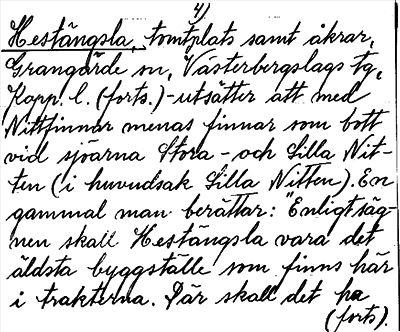 4)
Hestängsla, tomtplats samt åkrar,
Grangärde sn, Västerbergslags tg,
Kopp. l. (forts.) - utsätter att med
Nittfinnar menas finnar som bott
vid sjöarna Stora - och Lilla Nit-
ten (i huvudsak Lilla Nitten). En
gammal man berättar: "Enligt säg-
nen skall Hestängsla vara det
äldsta byggställe som finns här
i trakterna. Där skall det ha
(forts).